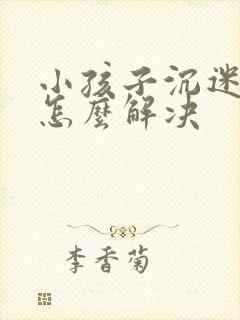 小孩子沉迷
怎麼解决
李香菊